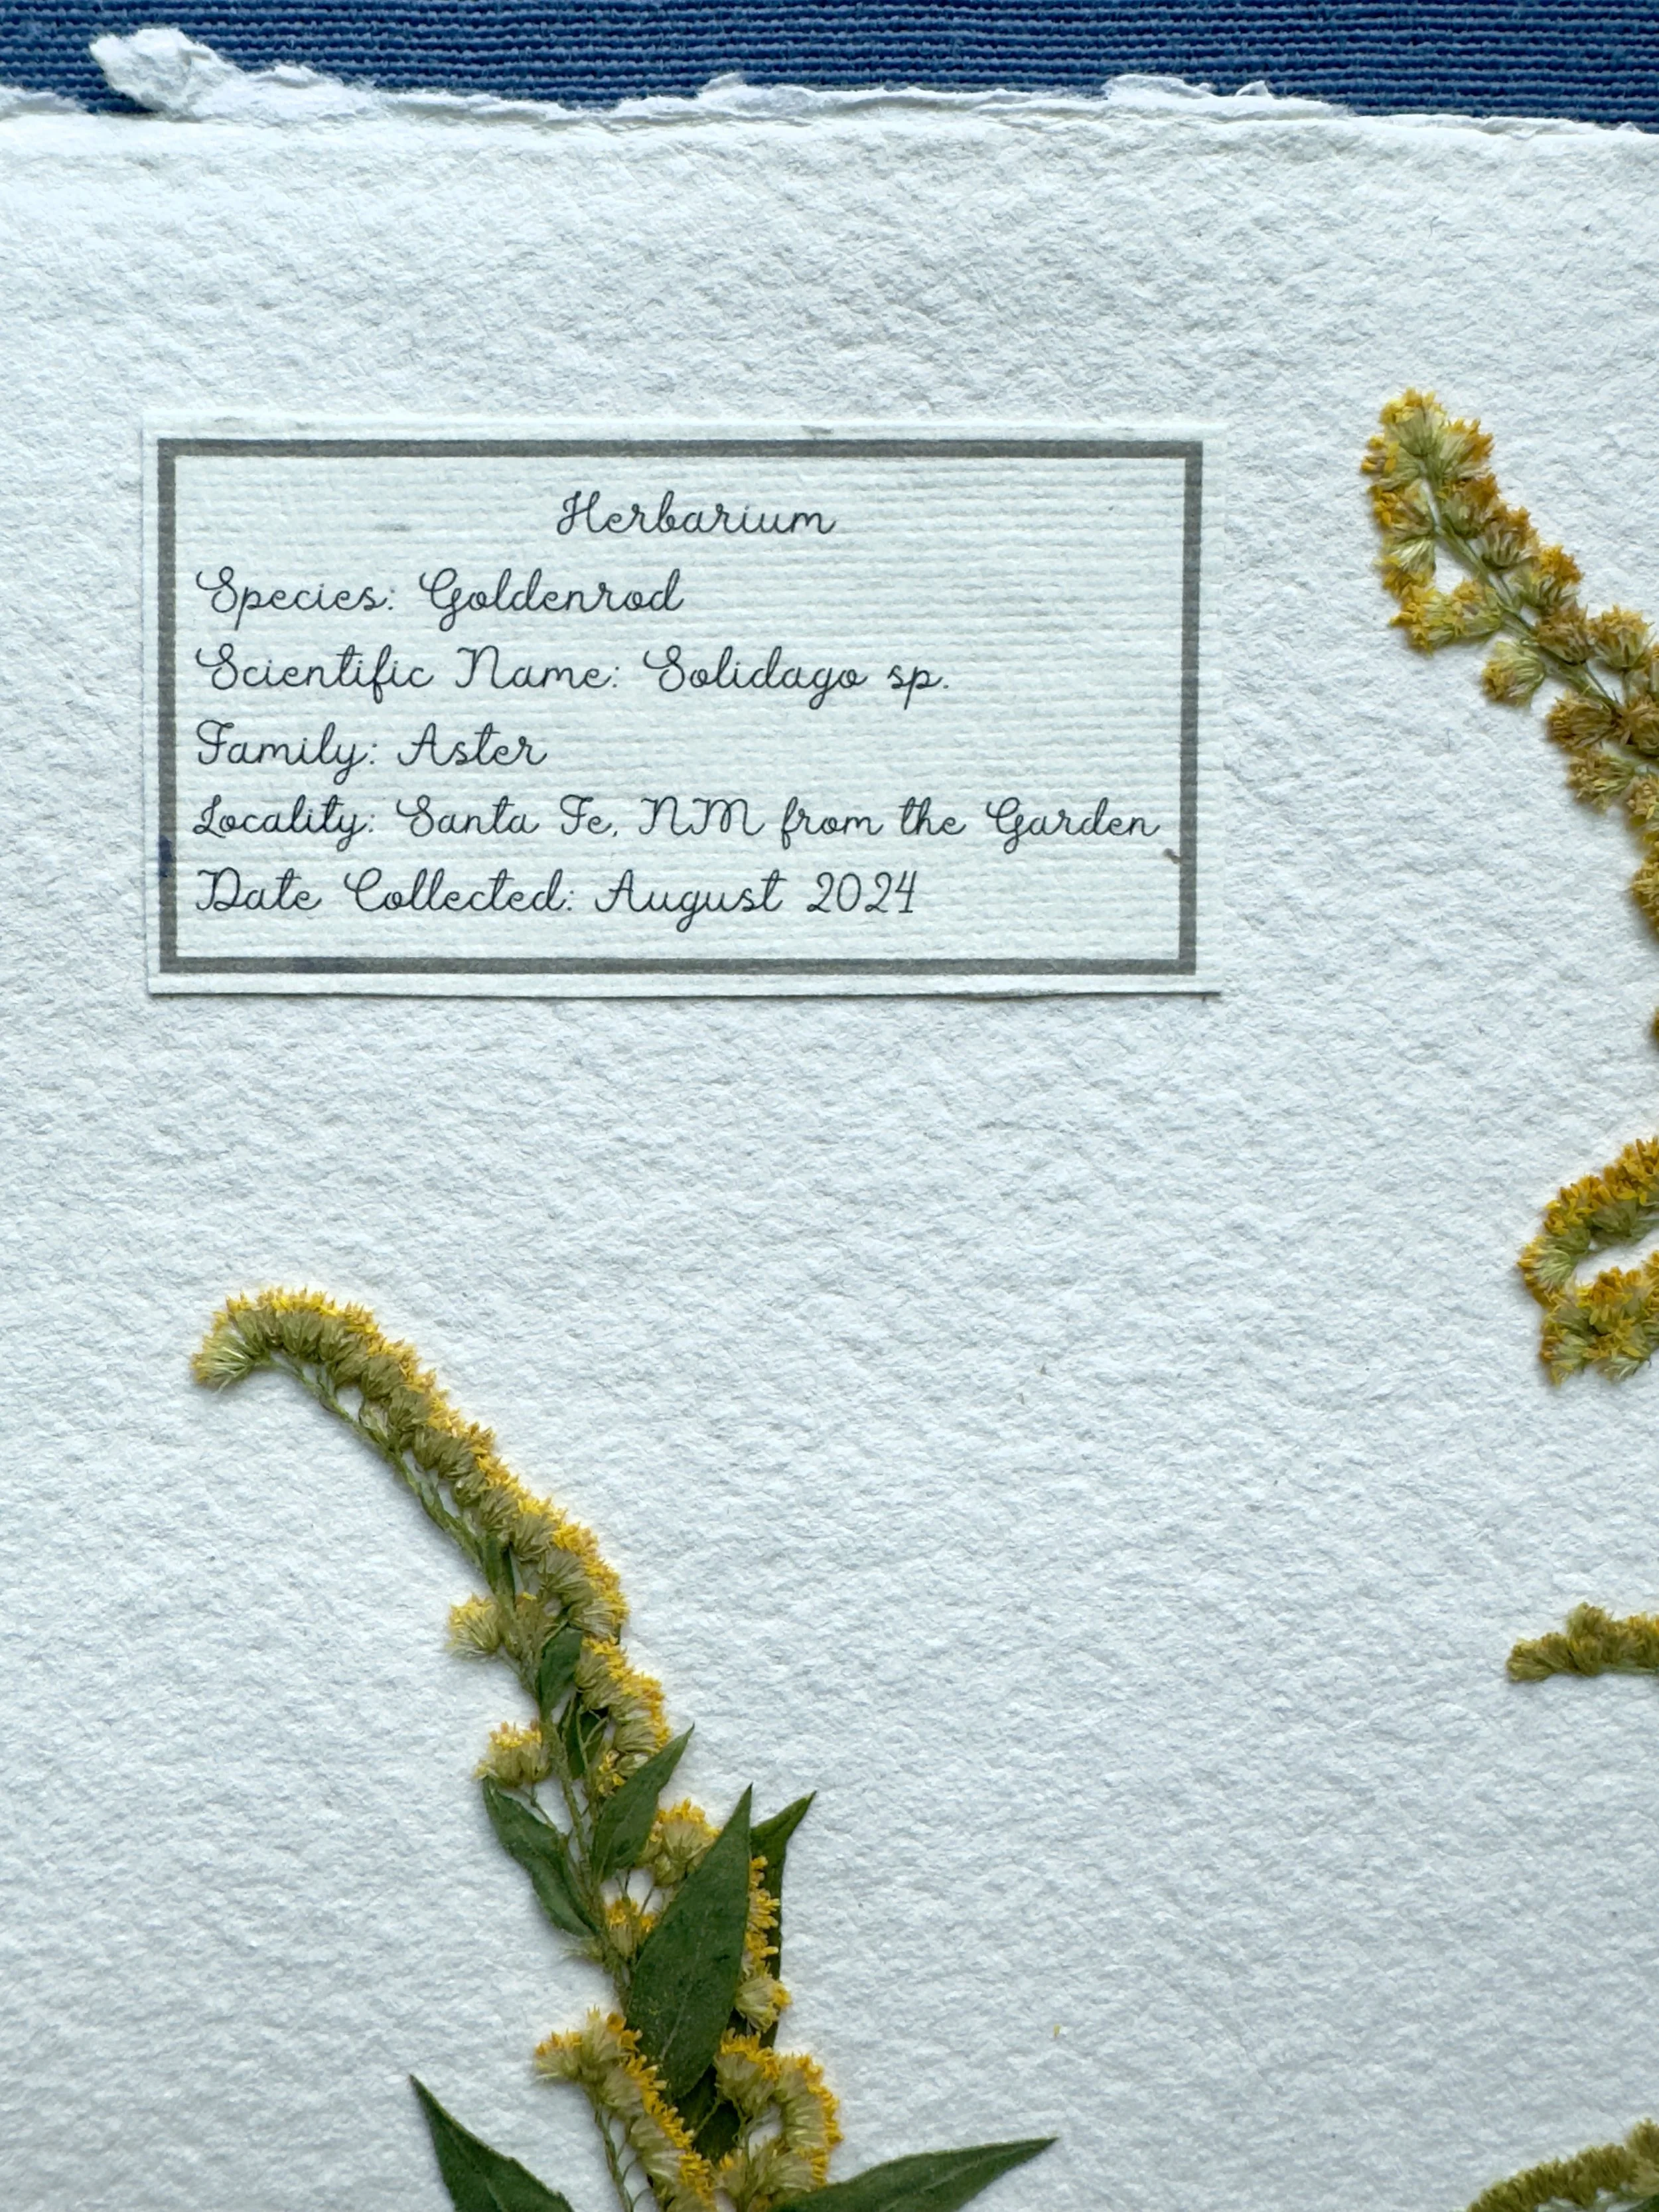 Herbarium
Species: Goldenrod
Scientific Name: Solidago sp.
Family: Aster
Locality: Santa Fe, NM from the Garden
Date Collected: August 2024